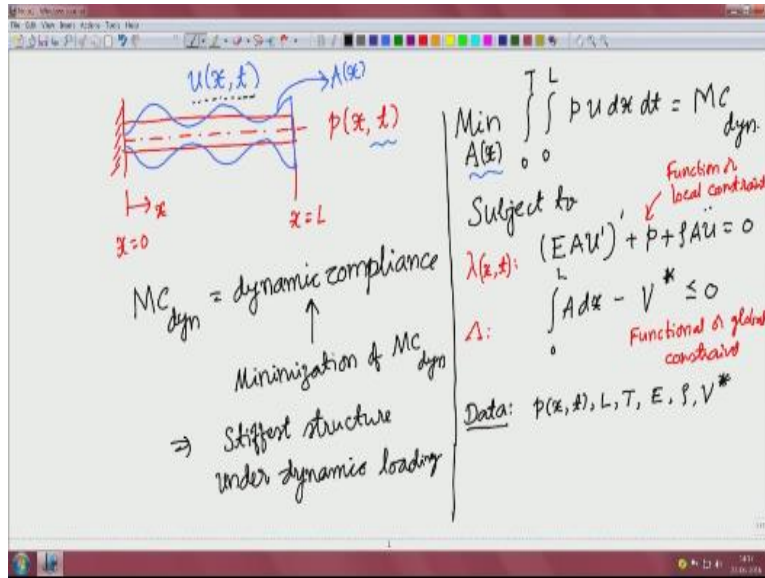 File Edit View Insert Actions Tools Help
u(x,t)
A(x)
p(x,t)
x
x=0
x=L
MC dyn = dynamic compliance
Minimization of MC dyn
⇒ Stiffest structure
under dynamic loading
Min ∫₀ᵀ ∫₀ᴸ p u dx dt = MC dyn.
A(x)
Subject to
Function or
local constraint
λ(x,t): (EAu')' + p + ρAü = 0
Λ: ∫₀ᴸ A dx - V* ≤ 0
Functional or global
constraint
Data: p(x,t), L, T, E, ρ, V*
1